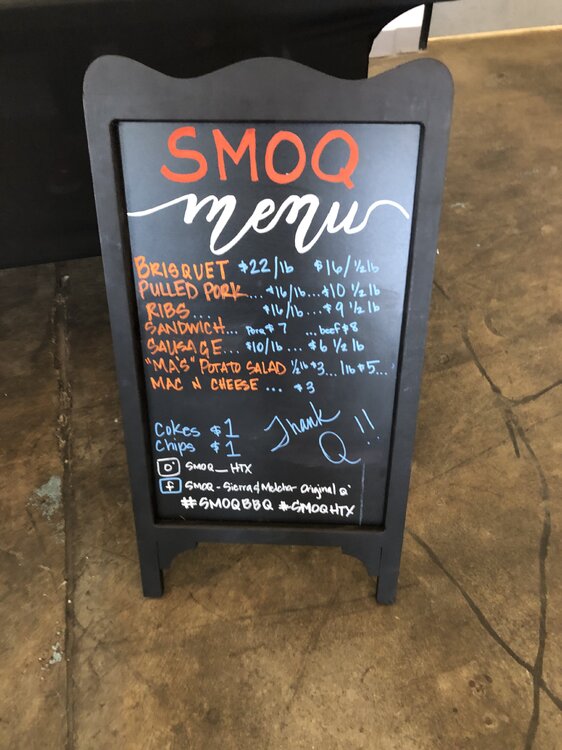 SMOQ
menu
BRISQUET $22/lb $16/½lb
PULLED PORK... $16/lb...$10 ½lb
RIBS... $16/lb... $9 ½lb
SANDWICH... Pork $7 ...beef $8
SAUSAGE... $10/lb... $6 ½lb
"MA'S" POTATO SALAD ½lb $3...lb $5...
MAC N CHEESE ... $3
Cokes $1
Chips $1
Thank Q!!
SMOQ_HTX
f SMOQ - Sierra & Melcher Original Q'
#SMOQBBQ #SMOQHTX